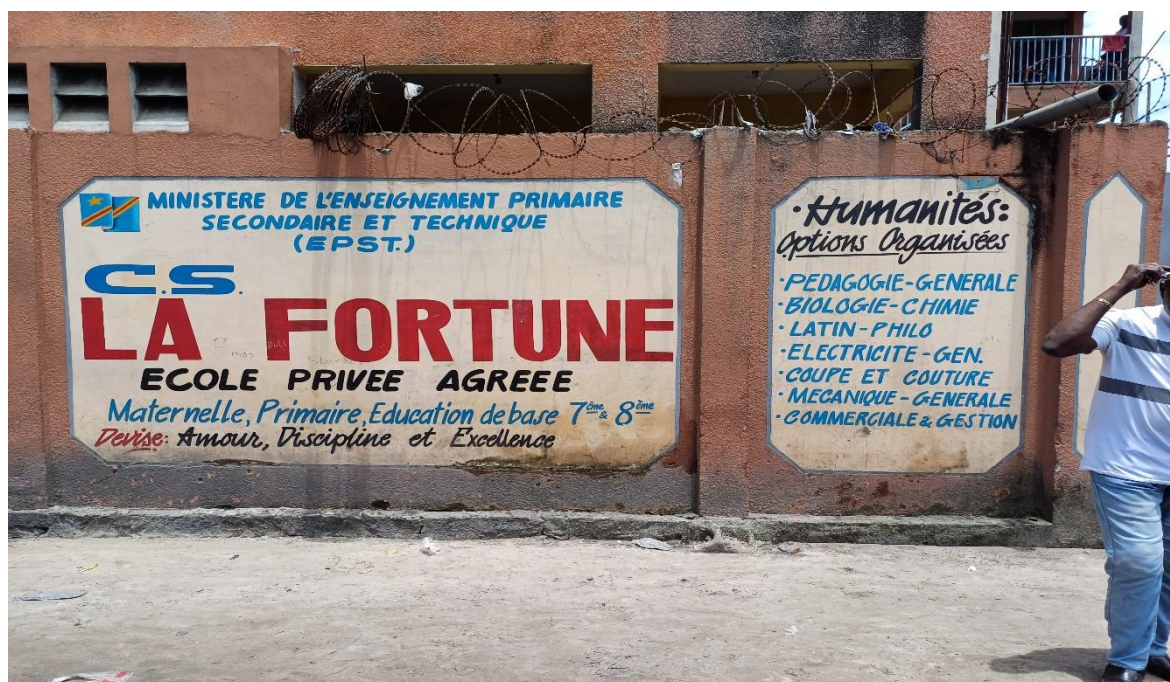 MINISTERE DE L'ENSEIGNEMENT PRIMAIRE
SECONDAIRE ET TECHNIQUE
(EPST.)
C.S.
LA FORTUNE
ECOLE PRIVEE AGREEE
Maternelle, Primaire, Education de base 7ème & 8ème
Devise: Amour, Discipline et Excellence
• Humanités:
Options Organisées
• PEDAGOGIE-GENERALE
• BIOLOGIE-CHIMIE
• LATIN-PHILO
• ELECTRICITE-GEN.
• COUPE ET COUTURE
• MECANIQUE-GENERALE
• COMMERCIALE & GESTION